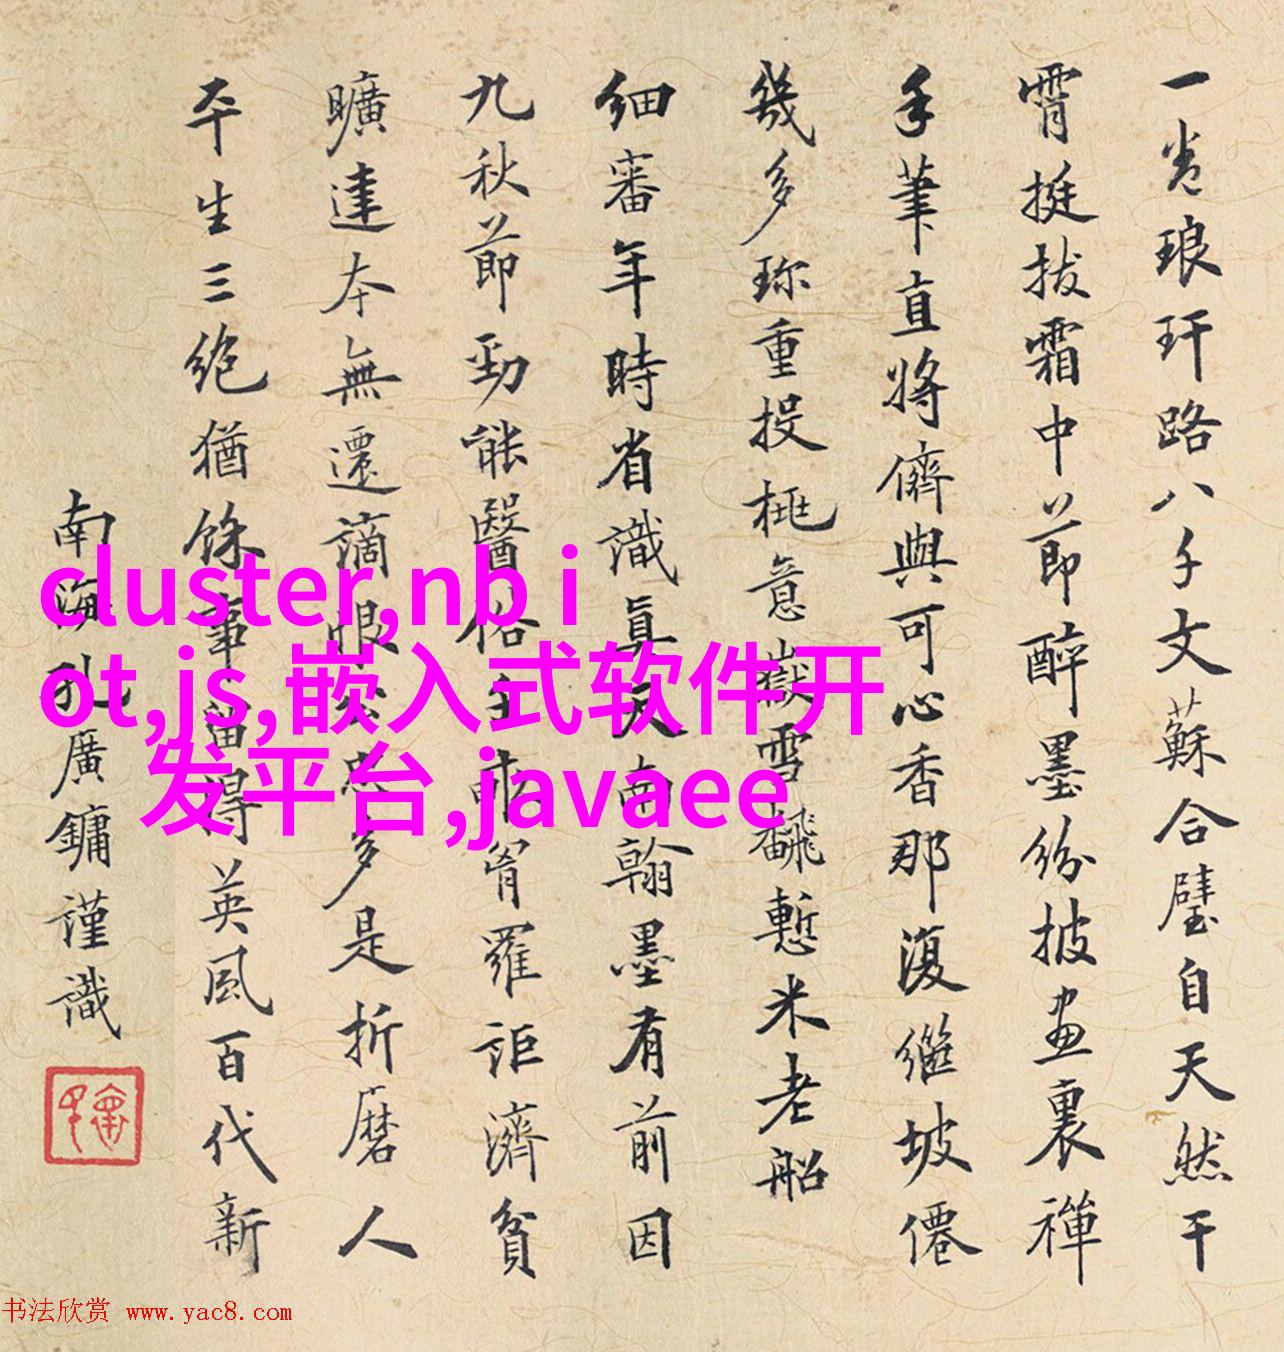 一卷琅玕路八千文蘇合璧自天然干
霄挺拔霜中節醉墨紛披畫裏禪
手筆直將儕與可心香那復繼坡僊
幾多珎重投桃意嶽雪飜慙米老船
細審年時省識真天南翰墨有前因
九秋節勁能醫俗主 胷羅詎濟貧
曠達本無遷謫恨 忠多是折磨人
平生三絕猶餘事留得英風百代新
南海孔廣鏞謹識
cluster,nb i
ot,js,嵌入式软件开
发平台,javaee
书法欣赏 www.yac8.com